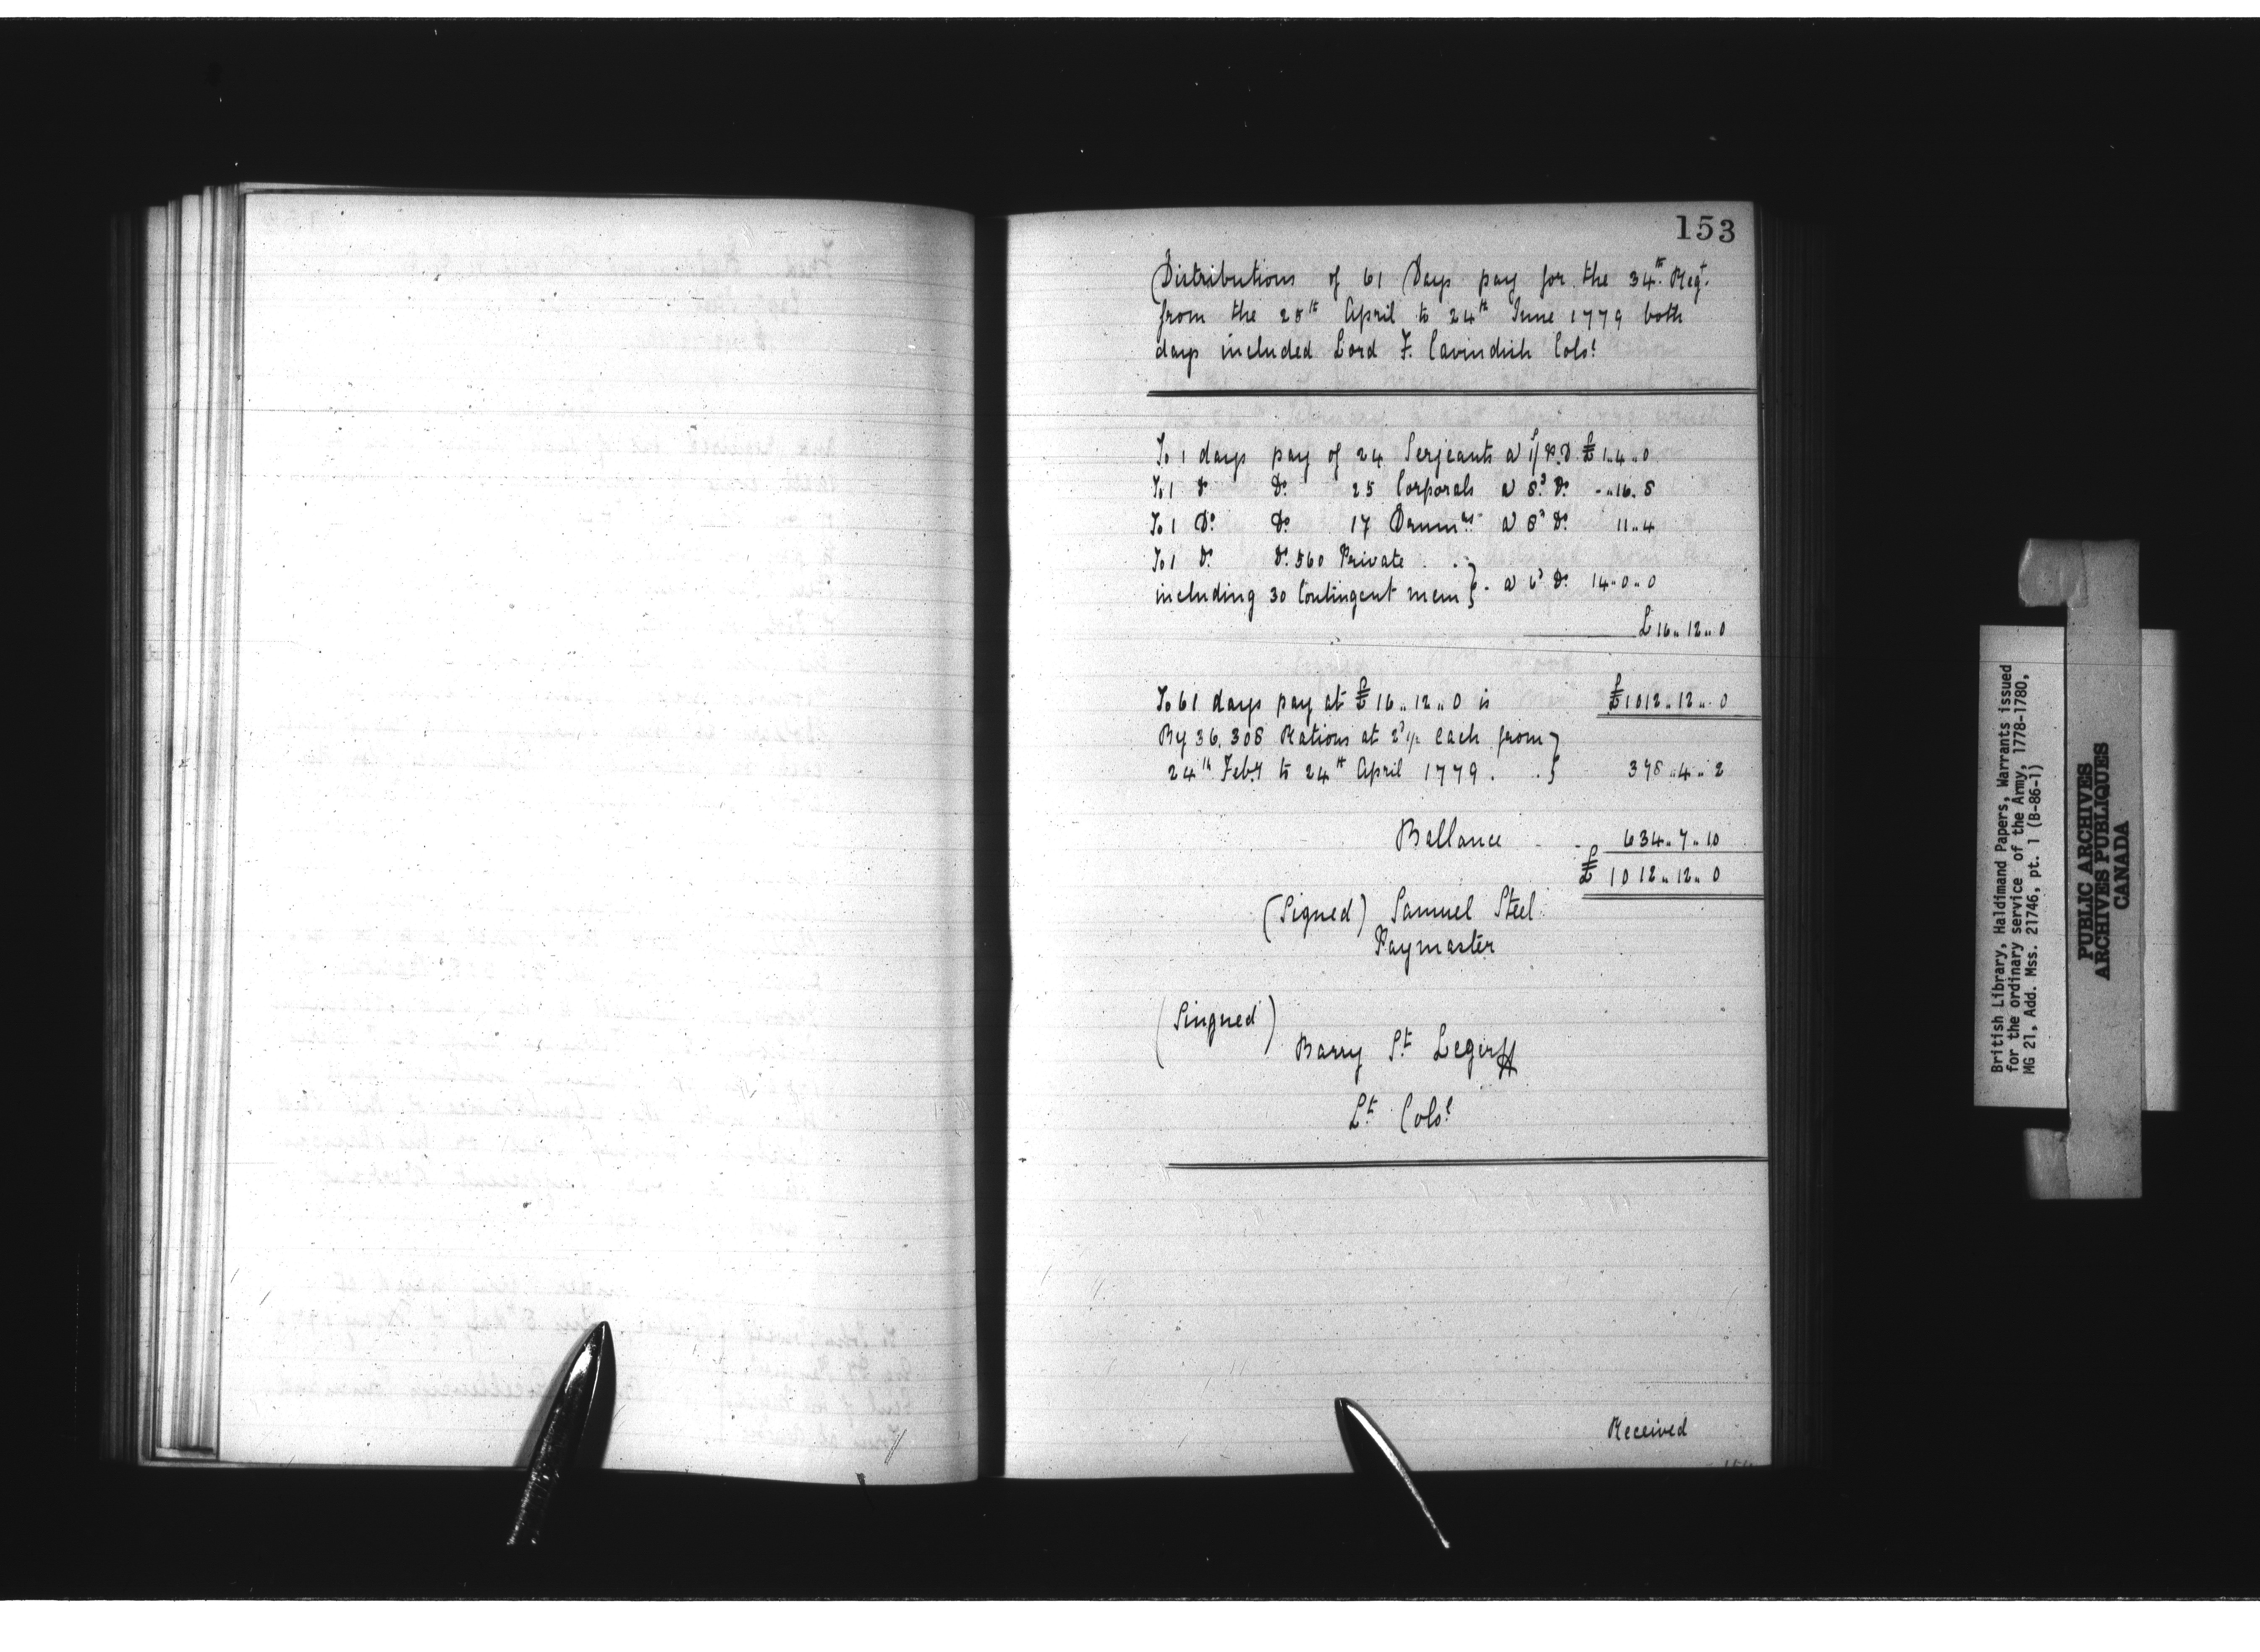 153
Distributions of 61 Days pay for the 34th Regt
from the 25th April to 24th June 1779 both
days included Lord F. Cavindish Colol
To 1 days pay of 24 Serjeants a 1/ P.D. £1..4..0
To 1 Do Do 25 Corporals a 8d Do -..16..8
To 1 Do Do 17 Drummrs a 8d Do 11..4
To 1 Do Do 560 Private . .
including 30 Contingent men } . a 6d Do 14..0..0
£16..12..0
To 61 days pay at £16..12..0 is £1012..12..0
By 36,308 Rations at 2d½ each from
24th Feby to 24th April 1779. . } 378..4..2
Ballance - - 634..7..10
£ 1012..12..0
(Signed) Samuel Steel
Paymaster
(Singned)
Barry St Leger
Lt Colol
Received
British Library, Haldimand Papers, Warrants issued
for the ordinary service of the Army, 1778-1780,
MG 21, Add. Mss. 21746, pt. 1 (B-86-1)
PUBLIC ARCHIVES
ARCHIVES PUBLIQUES
CANADA